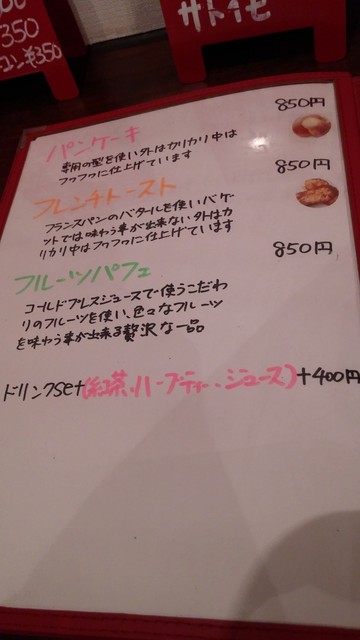 350
¥350
サトイモ
850円
パンケーキ
専用の型を使い外はカリカリ中は
フワフワに仕上げています
850円
フレンチトースト
フランスパンのバタールを使いバケ
ットでは味わう事が出来ない外はカ
リカリ中はフワフワに仕上げています
850円
フルーツパフェ
コールドプレスジュースで使うこだわ
りのフルーツを使い、色々なフルーツ
を味わう事が出来る贅沢な一品
ドリンクset(紅茶、ハーブティー、ジュース)+400円